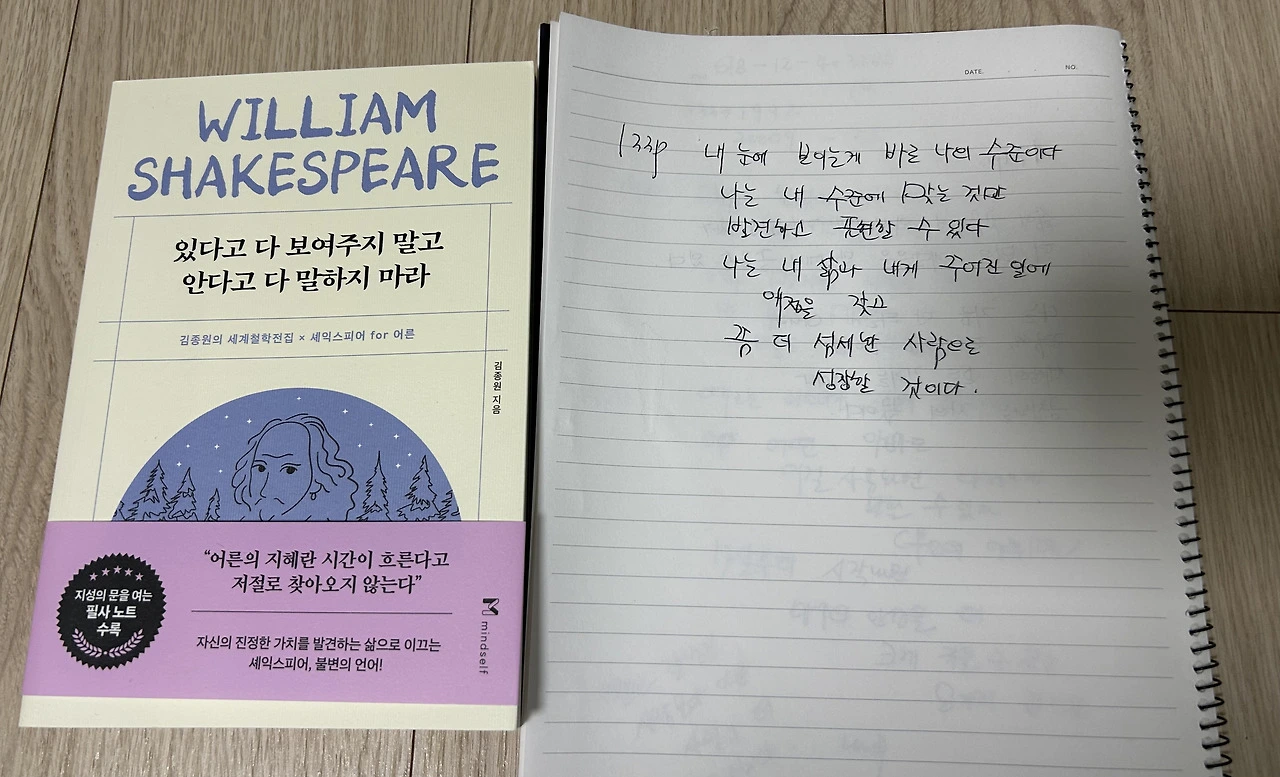 WILLIAM
SHAKESPEARE
있다고 다 보여주지 말고
안다고 다 말하지 마라
김종원의 세계철학전집 × 셰익스피어 for 어른
김종원 지음
지성의 문을 여는
필사 노트
수록
“어른의 지혜란 시간이 흐른다고
저절로 찾아오지 않는다”
자신의 진정한 가치를 발견하는 삶으로 이끄는
셰익스피어, 불변의 언어!
mindself
DATE.
NO.
내 눈에 보이는게 바로 나의 수준이다
나는 내 수준에 맞는 것만
발견하고 표현할 수 있다
나는 내 삶과 내게 주어진 일에
애정을 갖고
좀 더 섬세한 사람으로
성장할 것이다.